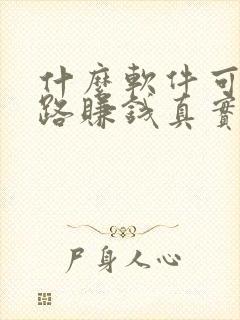 什麼軟件可
路賺錢真實
尸身人心